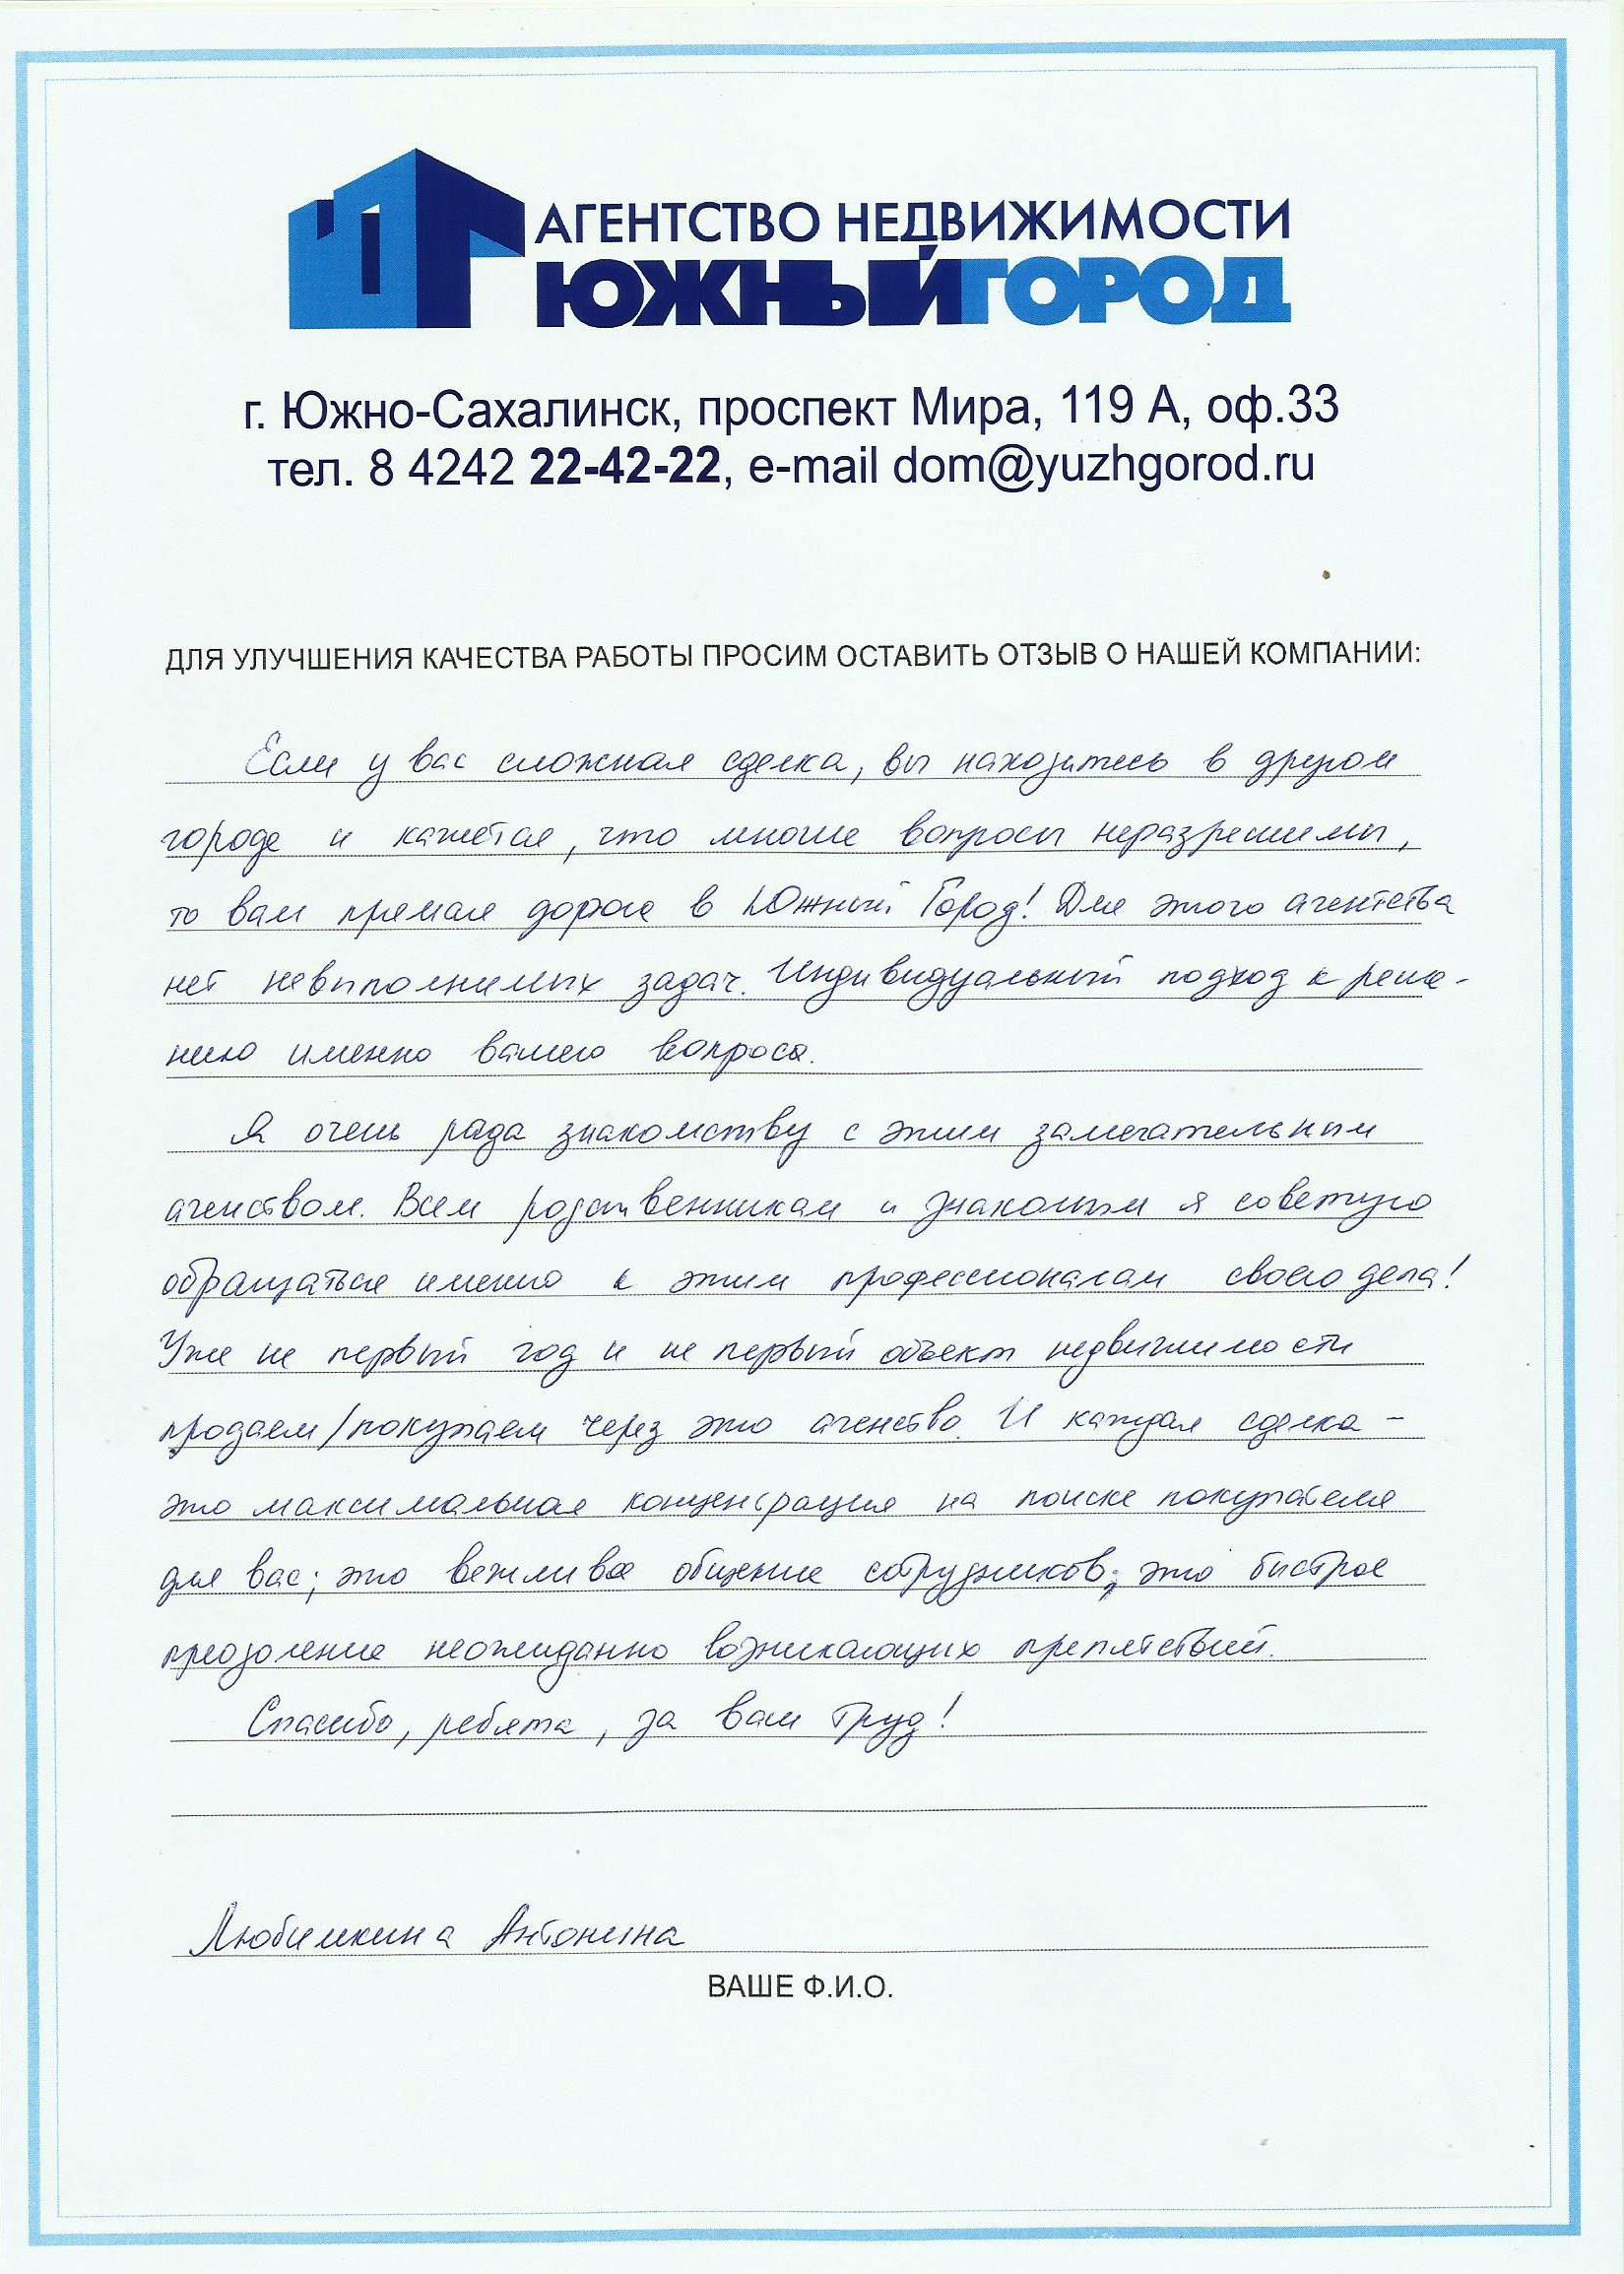 АГЕНТСТВО НЕДВИЖИМОСТИ
ЮЖНЫЙГОРОД
г. Южно-Сахалинск, проспект Мира, 119 А, оф.33
тел. 8 4242 22-42-22, e-mail dom@yuzhgorod.ru
ДЛЯ УЛУЧШЕНИЯ КАЧЕСТВА РАБОТЫ ПРОСИМ ОСТАВИТЬ ОТЗЫВ О НАШЕЙ КОМПАНИИ:
Если у вас сложная сделка, вы находитесь в другом
городе и кажется, что многие вопросы неразрешимы,
то вам прямая дорога в Южный Город! Для этого агентства
нет невыполнимых задач. Индивидуальный подход к реше-
нию именно вашего вопроса.
Я очень рада знакомству с этим замечательным
агенством. Всем родственникам и знакомым я советую
обращаться именно к этим профессионалам своего дела!
Уже не первый год и не первый объект недвижимости
продаем/покупаем через это агенство. И каждая сделка -
это максимальная концентрация на поиске покупателя
для вас; это вежливое общение сотрудников; это быстрое
преодоление неожиданно возникающих препятствий.
Спасибо, ребята, за ваш труд!
Любимкина Антонина
ВАШЕ Ф.И.О.